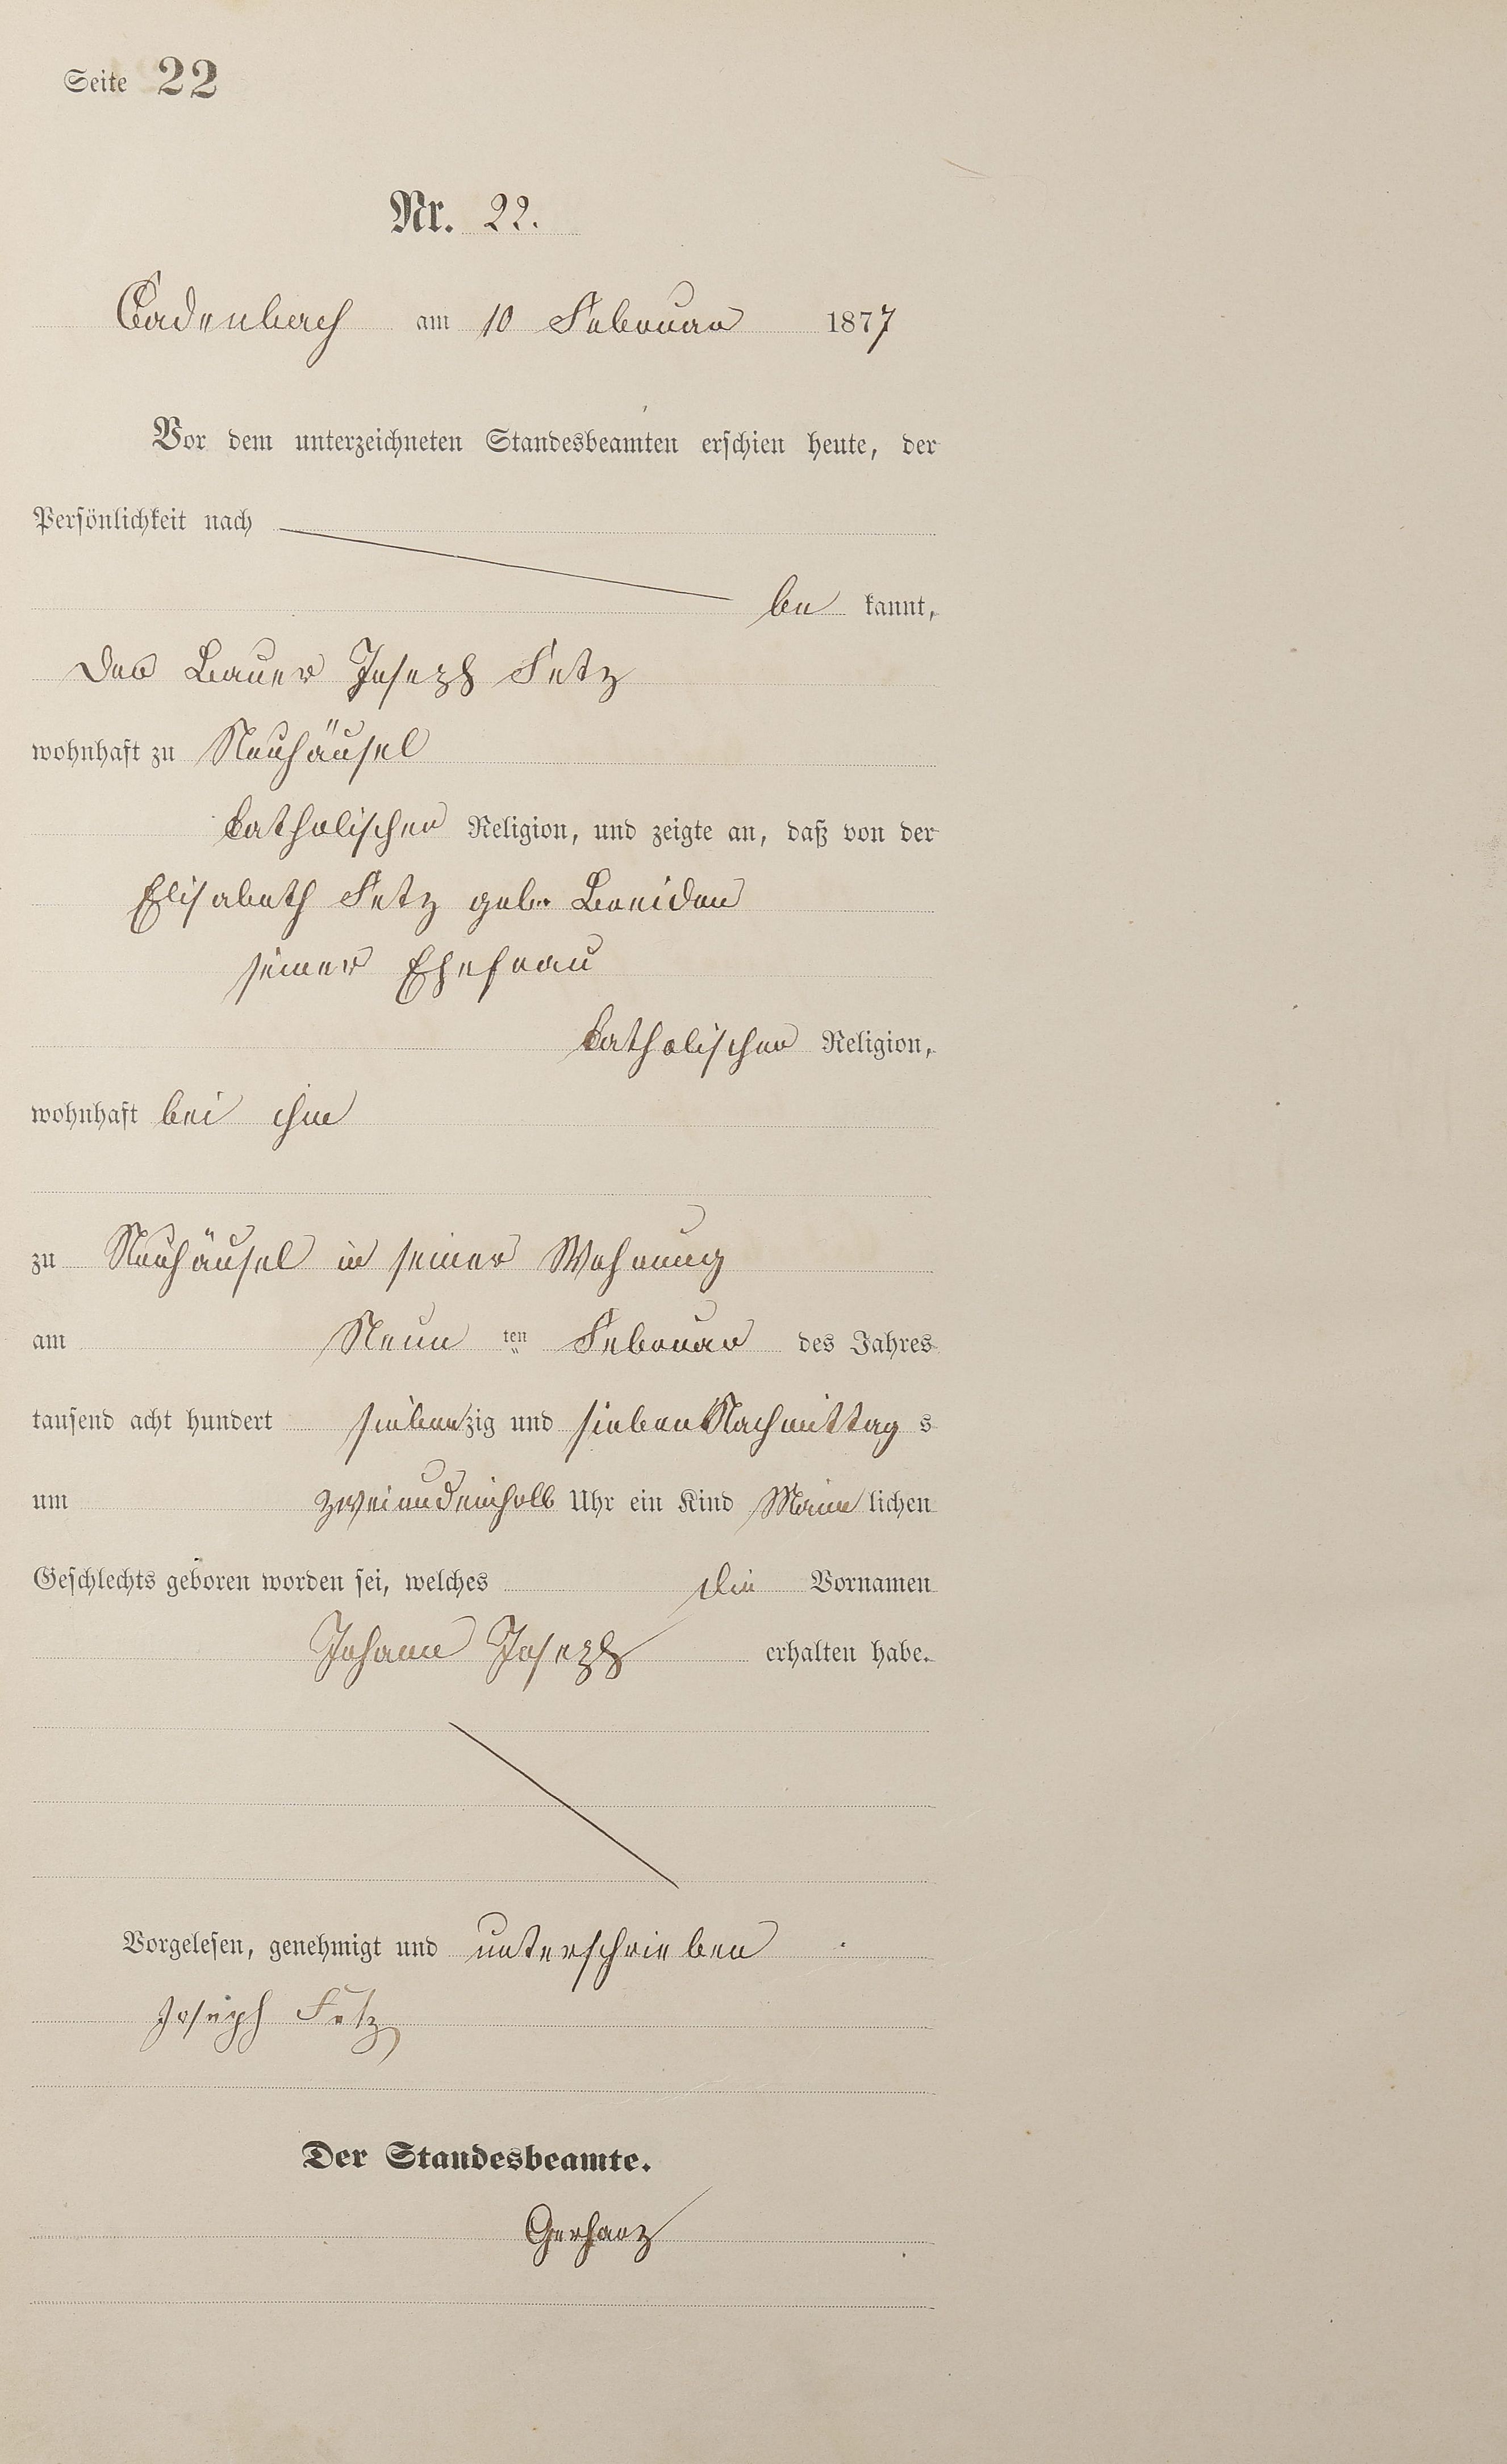 Seite 22
Nr. 22.
Cadenbach am 10 Februar 1877
Vor dem unterzeichneten Standesbeamten erschien heute, der
Persönlichkeit nach
be kannt,
Der Bauer Joseph Fetz
wohnhaft zu Neuhäusel
katholischer Religion, und zeigte an, daß von der
Elisabeth Fetz geb. Breiden
seiner Ehefrau
katholischer Religion,
wohnhaft bei ihm
zu Neuhäusel in seiner Wohnung
am Neun ten Februar des Jahres
tausend acht hundert siebenzig und sieben Nachmittag s
um zweiundeinhalb Uhr ein Kind Männ lichen
Geschlechts geboren worden sei, welches die Vornamen
Johann Joseph erhalten habe.
Vorgelesen, genehmigt und unterschrieben
Joseph Fetz
Der Standesbeamte.
Gerharz